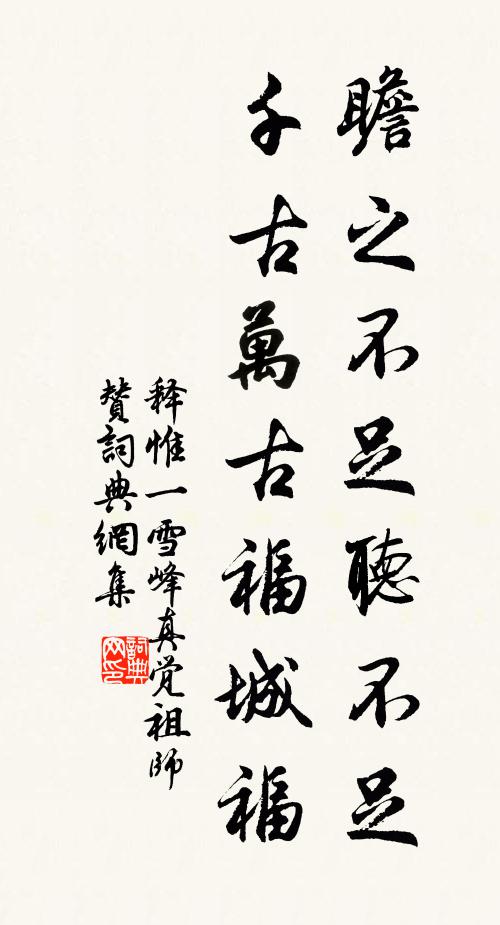 瞻之不足聽不足
千古萬古福城福
释惟一雪峰真觉祖師
贊詞典網集
詞典
网印